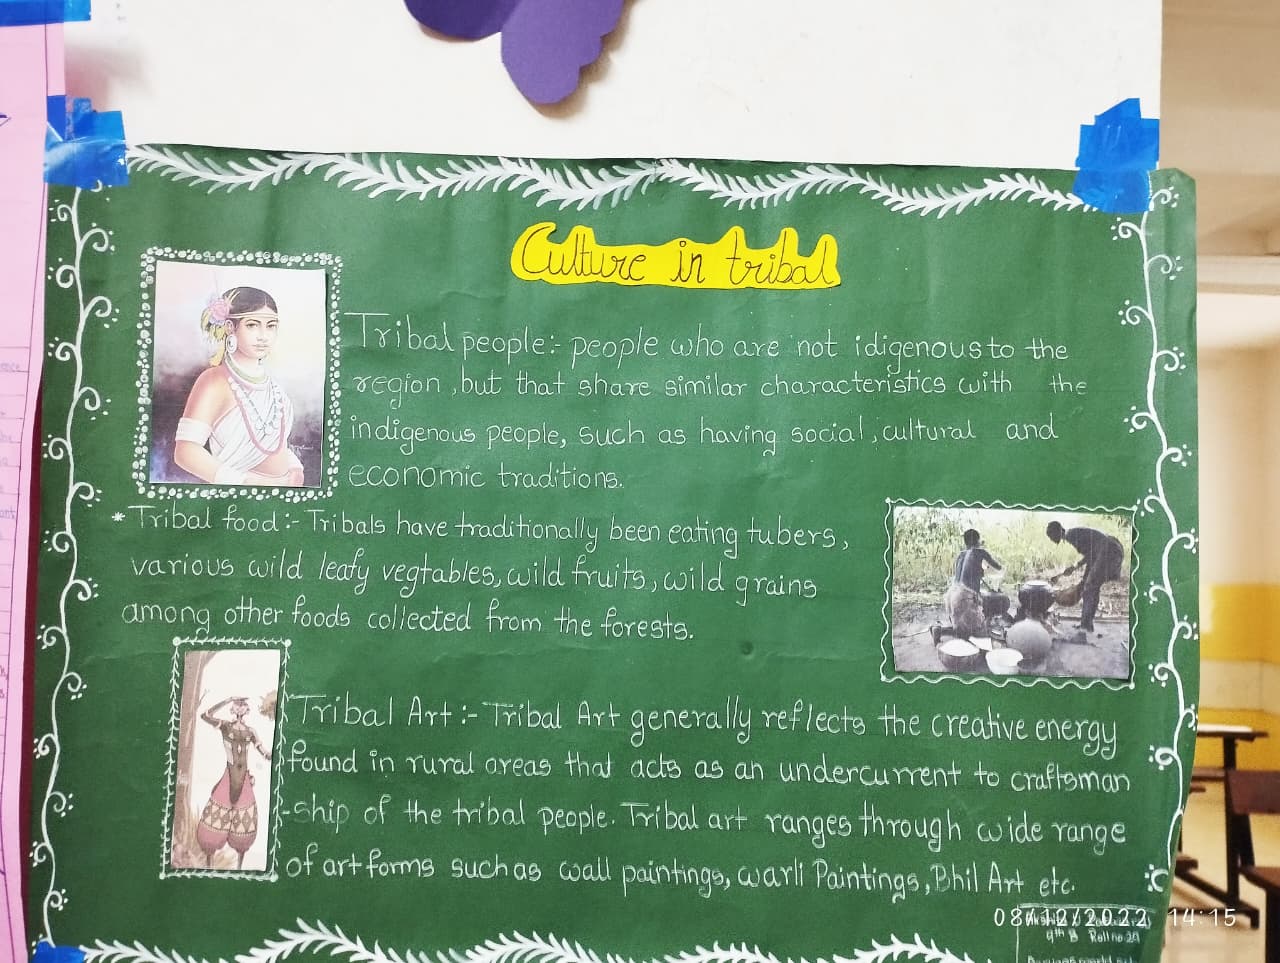 Culture in tribal
Tribal people:- people who are not idigenous to the
region, but that share similar characteristics with the
indigenous people, such as having social, cultural and
economic traditions.
* Tribal food:- Tribals have traditionally been eating tubers,
various wild leafy vegtables, wild fruits, wild grains
among other foods collected from the forests.
Tribal Art:- Tribal Art generally reflects the creative energy
found in rural areas that acts as an undercurrent to craftsman
-ship of the tribal people. Tribal art ranges through wide range
of art forms such as wall paintings, warli Paintings, Bhil Art etc.
08/12/2022 14:15
9th B Roll no 29